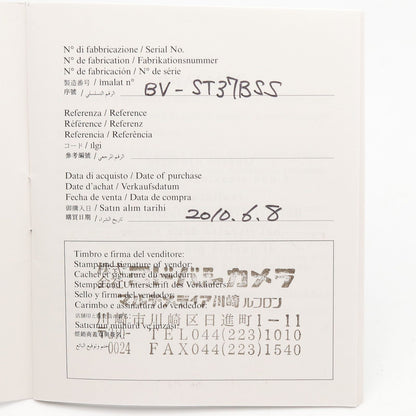 N° di fabbricazione / Serial No.
N° de fabrication / Fabrikationsnummer
N° de fabricación / N° de série
製造番号 / İmalat n°
序號 / الرقم التسلسلي
BV-ST37BSS
Referenza / Reference
Référence / Referenz
Referencia / Referência
コード / İlgi
參考編號 / الرقم المرجعي
Data di acquisto / Date of purchase
Date d'achat / Verkaufsdatum
Fecha de venta / Data de compra
御購入日 / Satın alım tarihi
購買日期 / تاريخ الشراء
2010.6.8
Timbro e firma del venditore:
Stamp and signature of vendor:
Cachet et signature du vendeur:
Stempel und Unterschrift des Verkäufers:
Sello y firma del vendedor:
Carimbo e assinatura do vendedor:
Satıcının mühürü ve imzası:
ヨドバシカメラ
マルチメディア川崎ルフロン
川崎市川崎区日進町1-11
TEL044(223)1010
0024 FAX044(223)1540